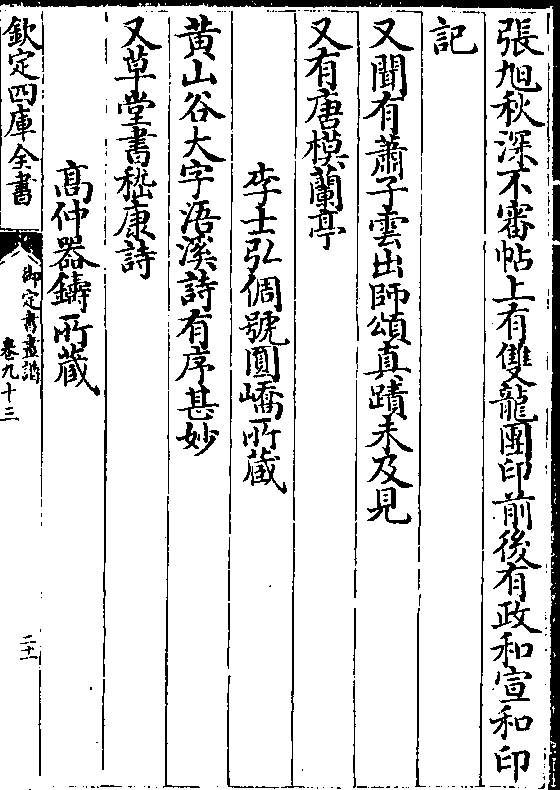 張旭秋深不審帖上有雙龍團印前後有政和宣和印
記
又聞有蕭子雲出師頌真蹟未及見
又有唐模蘭亭
李士弘倜號圓嶠所藏
黄山谷大字浯溪詩有序甚妙
又草堂書嵇康詩
高仲器鑄所蔵
欽定四庫全書
御定書畫譜
卷九十三
二十一